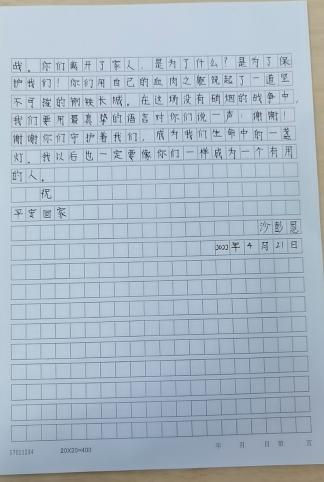 战。你们离开了家人，是为了什么？是为了保
护我们！你们用自己的血肉之躯筑起了一道坚
不可摧的钢铁长城。在这场没有硝烟的战争中，
我们要用最真挚的语言对你们说一声：谢谢！
谢谢你们守护着我们，成为我们生命中的一盏
灯。我以后也一定要像你们一样成为一个有用
的人。
祝
平安回家
沙彭恩
2022年4月21日
57011234 20X20=400 年 月 日 第 页